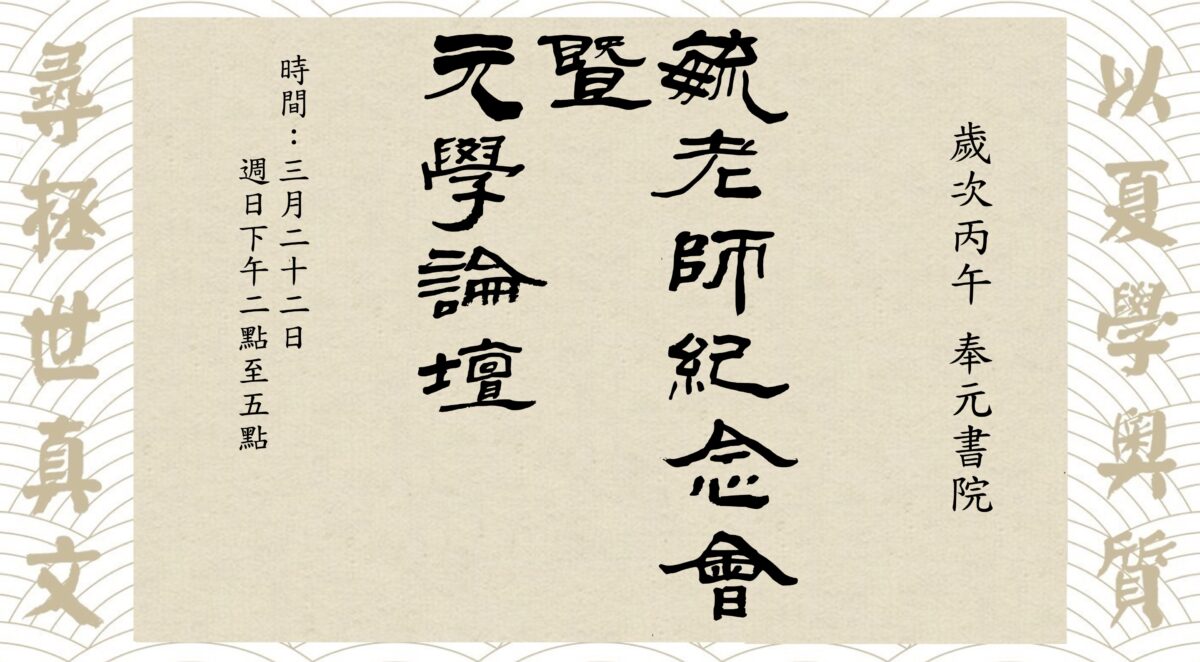 以夏學奧質
歲次丙午 奉元書院
毓老師紀念會
暨
元學論壇
時間：三月二十二日
週日下午二點至五點
尋拯世真文